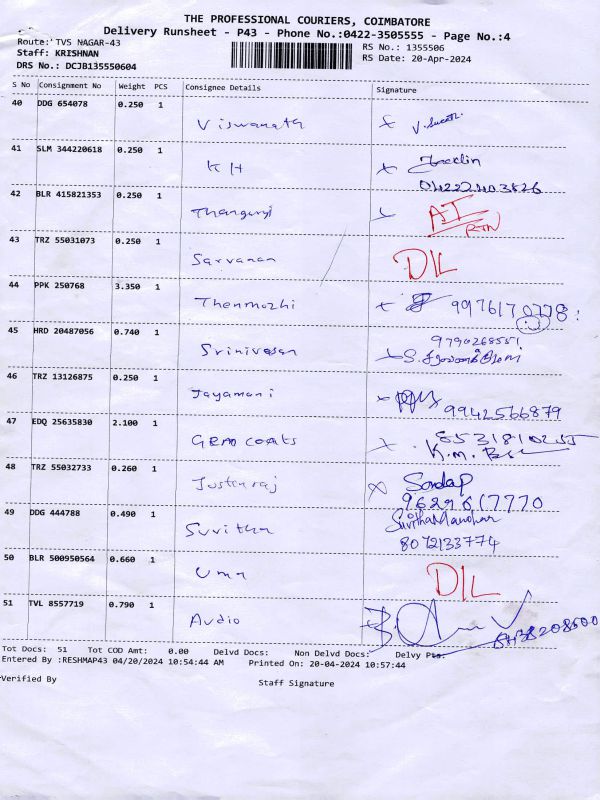 THE PROFESSIONAL COURIERS, COIMBATORE
Delivery Runsheet - P43 - Phone No.:0422-3505555 - Page No.:4
Route: TVS NAGAR-43 RS No.: 1355506
Staff: KRISHNAN RS Date: 20-Apr-2024
DRS No.: DCJB135550604
S No Consignment No Weight PCS Consignee Details Signature
40 DDG 654078 0.250 1
Viswanath
41 SLM 344220618 0.250 1
KH
42 BLR 415821353 0.250 1
AI
RTN
43 TRZ 55031073 0.250 1
Sarvanan DIL
44 PPK 250768 3.350 1
Thenmozhi
45 HRD 20487056 0.740 1
Srinivasan
46 TRZ 13126875 0.250 1
Jayamani 9942566879
47 EDQ 25635830 2.100 1
48 TRZ 55032733 0.260 1
Justin raj 9629617770
49 DDG 444788 0.490 1
Suvitha 8072133774
50 BLR 500950564 0.660 1
Uma DIL
51 TVL 8557719 0.790 1
Audio
Tot Docs: 51 Tot COD Amt: 0.00 Delvd Docs: Non Delvd Docs: Delvy Pts:
Entered By :RESHMAP43 04/20/2024 10:54:44 AM Printed On: 20-04-2024 10:57:44
Verified By Staff Signature